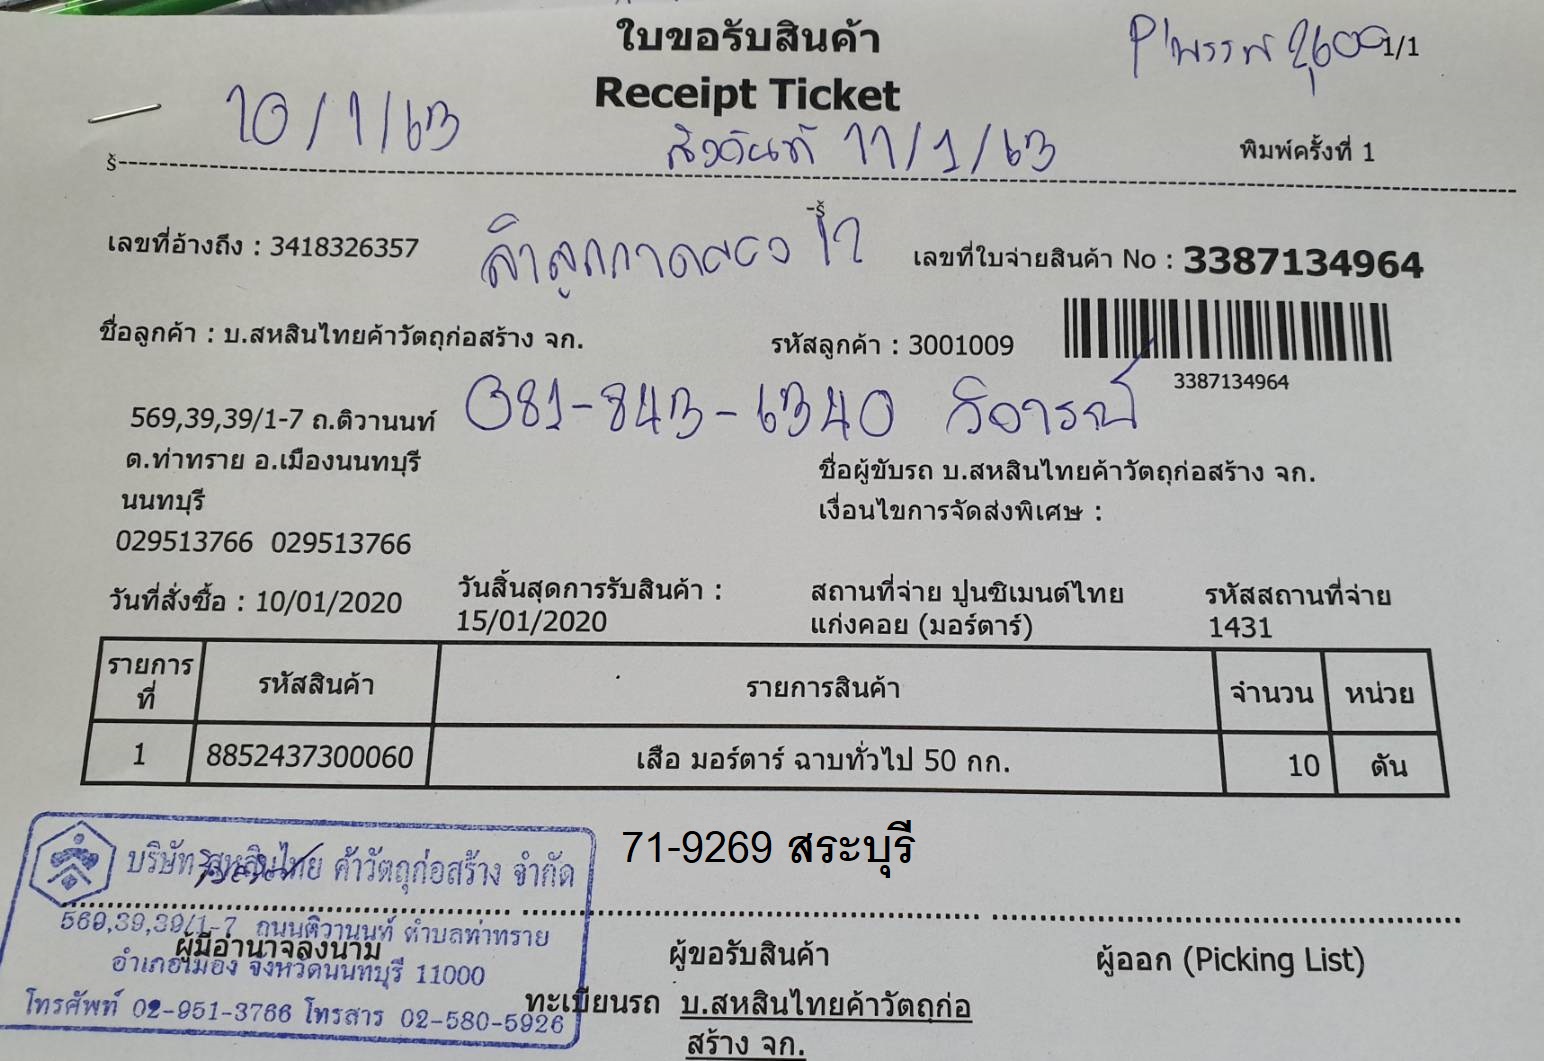 ใบขอรับสินค้า
Receipt Ticket
1/1
10/1/63
11/1/63
พิมพ์ครั้งที่ 1
เลขที่อ้างถึง : 3418326357
เลขที่ใบจ่ายสินค้า No : 3387134964
ชื่อลูกค้า : บ.สหสินไทยค้าวัตถุก่อสร้าง จก.
รหัสลูกค้า : 3001009
3387134964
081-843-6340
569,39,39/1-7 ถ.ติวานนท์
ต.ท่าทราย อ.เมืองนนทบุรี
นนทบุรี
029513766 029513766
ชื่อผู้ขับรถ บ.สหสินไทยค้าวัตถุก่อสร้าง จก.
เงื่อนไขการจัดส่งพิเศษ :
วันที่สั่งซื้อ : 10/01/2020
วันสิ้นสุดการรับสินค้า :
15/01/2020
สถานที่จ่าย ปูนซิเมนต์ไทย
แก่งคอย (มอร์ตาร์)
รหัสสถานที่จ่าย
1431
รายการที่ รหัสสินค้า รายการสินค้า จำนวน หน่วย
1 8852437300060 เสือ มอร์ตาร์ ฉาบทั่วไป 50 กก. 10 ตัน
71-9269 สระบุรี
บริษัท สหสินไทย ค้าวัตถุก่อสร้าง จำกัด
569,39,39/1-7 ถนนติวานนท์ ตำบลท่าทราย
อำเภอเมือง จังหวัดนนทบุรี 11000
โทรศัพท์ 02-951-3766 โทรสาร 02-580-5926
ผู้มีอำนาจลงนาม
ผู้ขอรับสินค้า
ผู้ออก (Picking List)
ทะเบียนรถ บ.สหสินไทยค้าวัตถุก่อ
สร้าง จก.